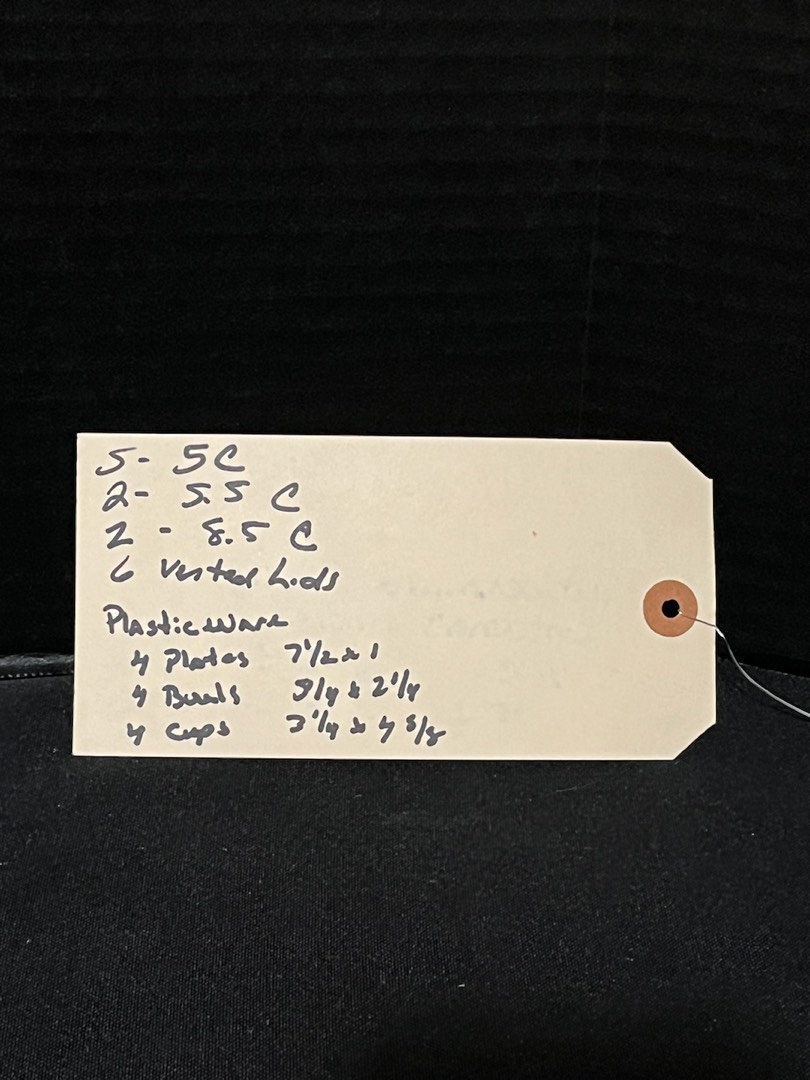 5- 5C
2- 5.5 C
2 - 8.5 C
6 Vented Lids
Plasticware
4 Plates 7 1/2 x 1
4 Bowls 5 1/4 x 2 1/4
4 Cups 3 1/4 x 4 5/8